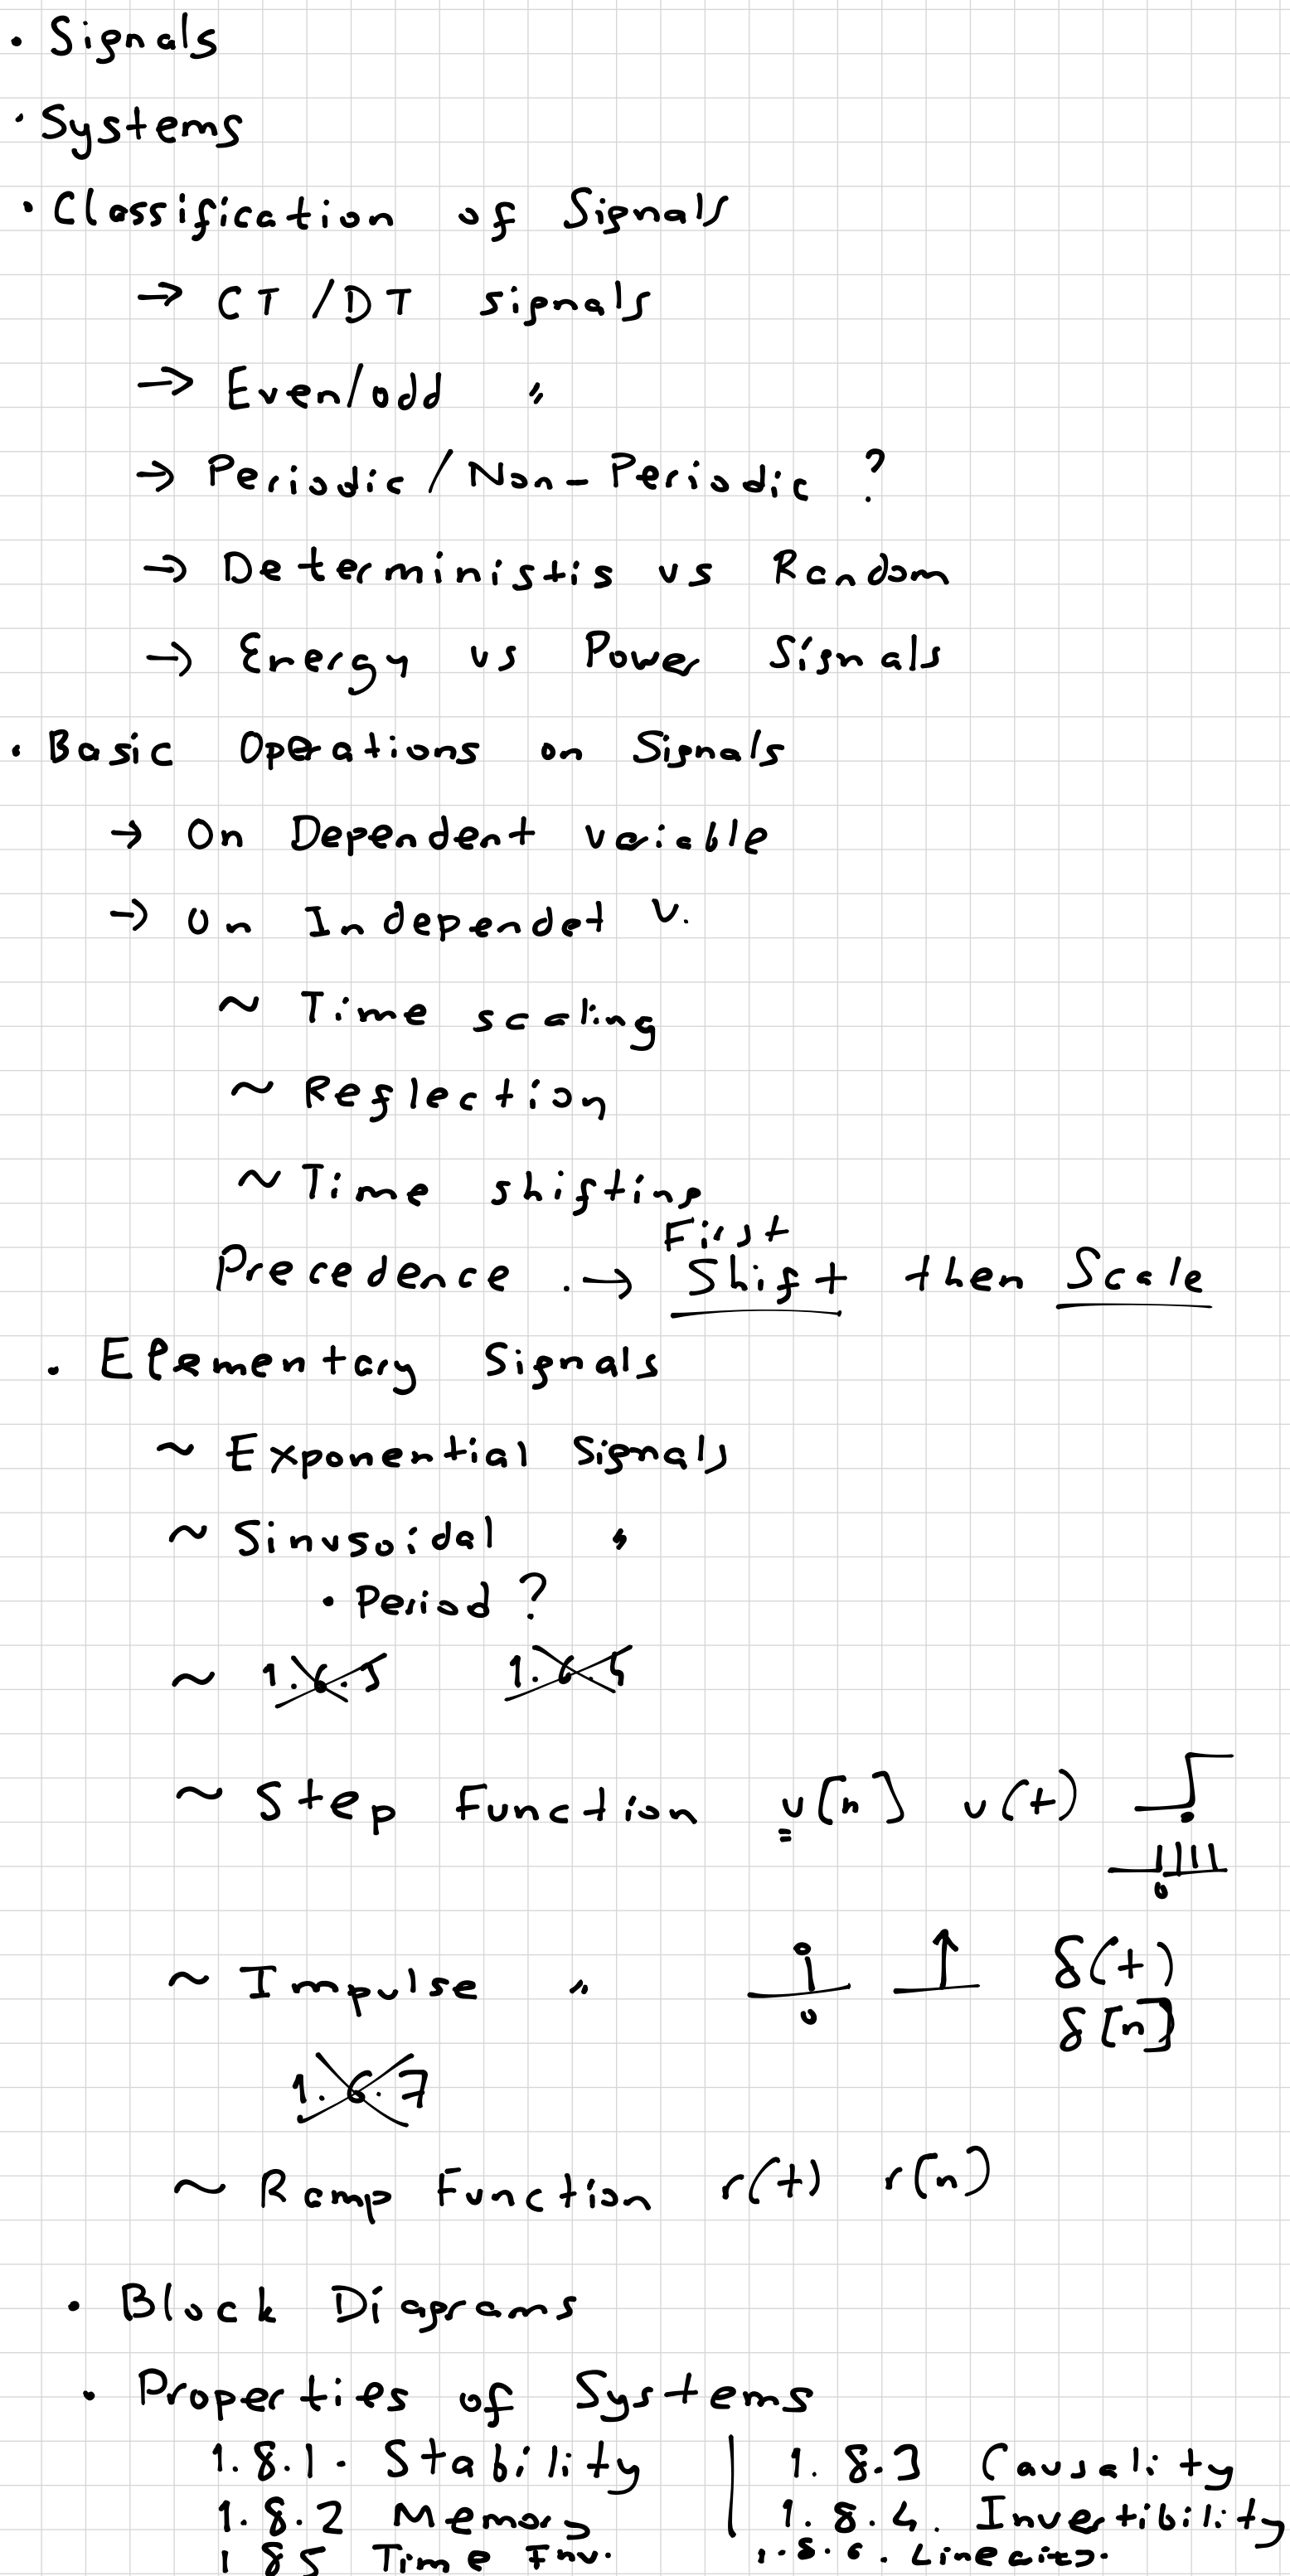 • Signals
• Systems
• Classification of Signals
→ CT / DT signals
→ Even/odd "
→ Periodic / Non-Periodic ?
→ Deterministis vs Random
→ Energy vs Power Signals
• Basic Operations on Signals
→ On Dependent variable
→ On Independet v.
~ Time scaling
~ Reflection
~ Time shifting
First
Precedence .→ Shift then Scale
• Elementary Signals
~ Exponential Signals
~ Sinusoidal "
• Period ?
~ 1.6.5 1.6.5
~ Step Function u[n] u(t)
0
0
~ Impulse " 0 δ(t)
δ[n]
1.6.7
~ Ramp Function r(t) r[n]
• Block Diagrams
• Properties of Systems
1.8.1. Stability | 1.8.3 Causality
1.8.2 Memory 1.8.4. Invertibility
1 8 5 Time Inv. 1.8.6. Linearity.